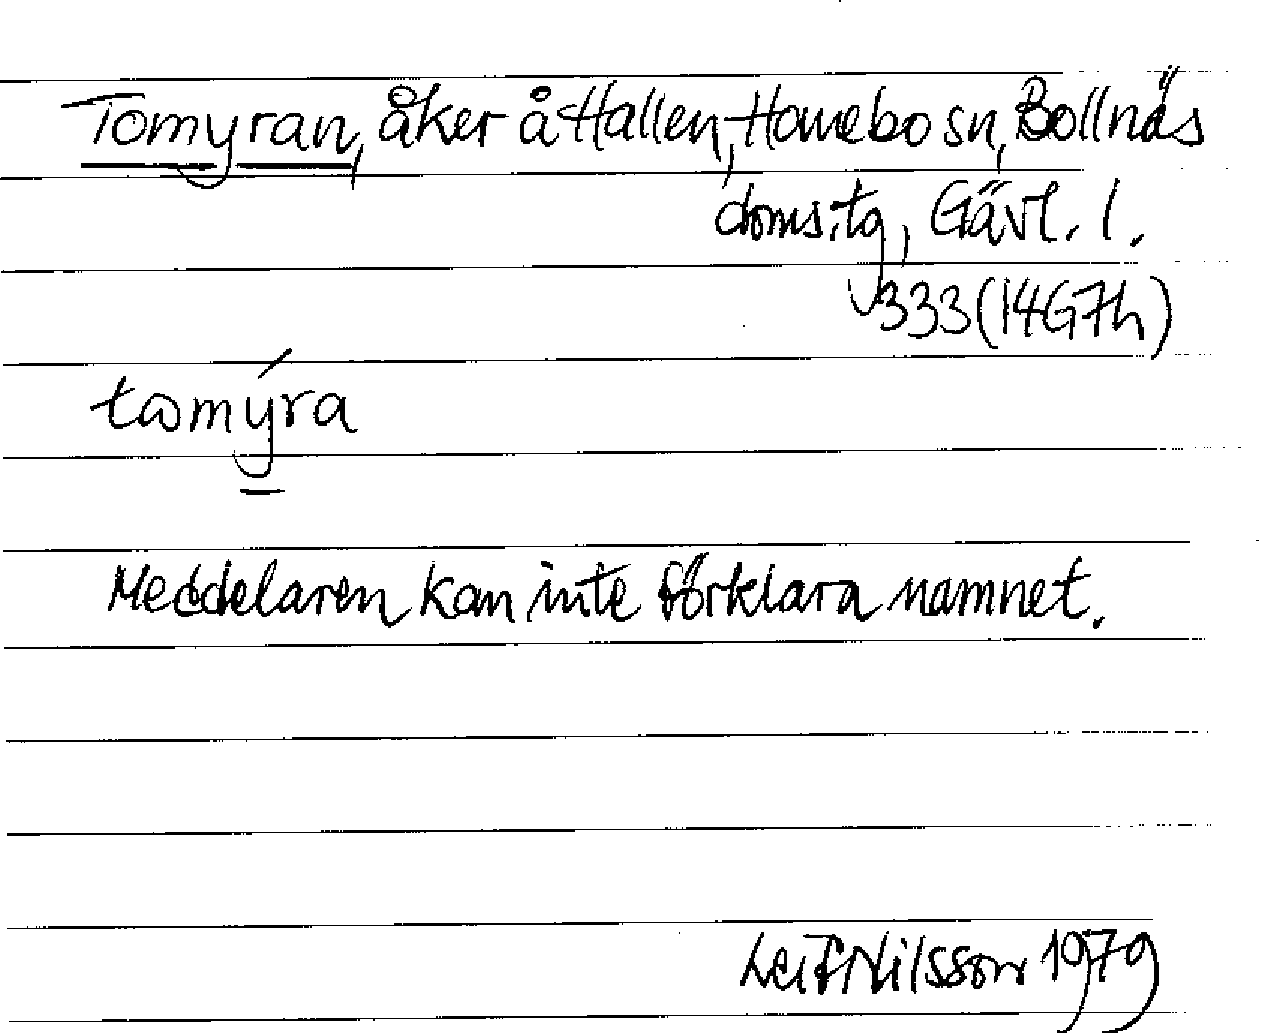 Tomyran, åker å Hallen, Hanebo sn, Bollnäs
doms.tg, Gävl. l.
333 (14G7h)
tωmýra
Meddelaren kan inte förklara namnet.
Leif Nilsson 1979